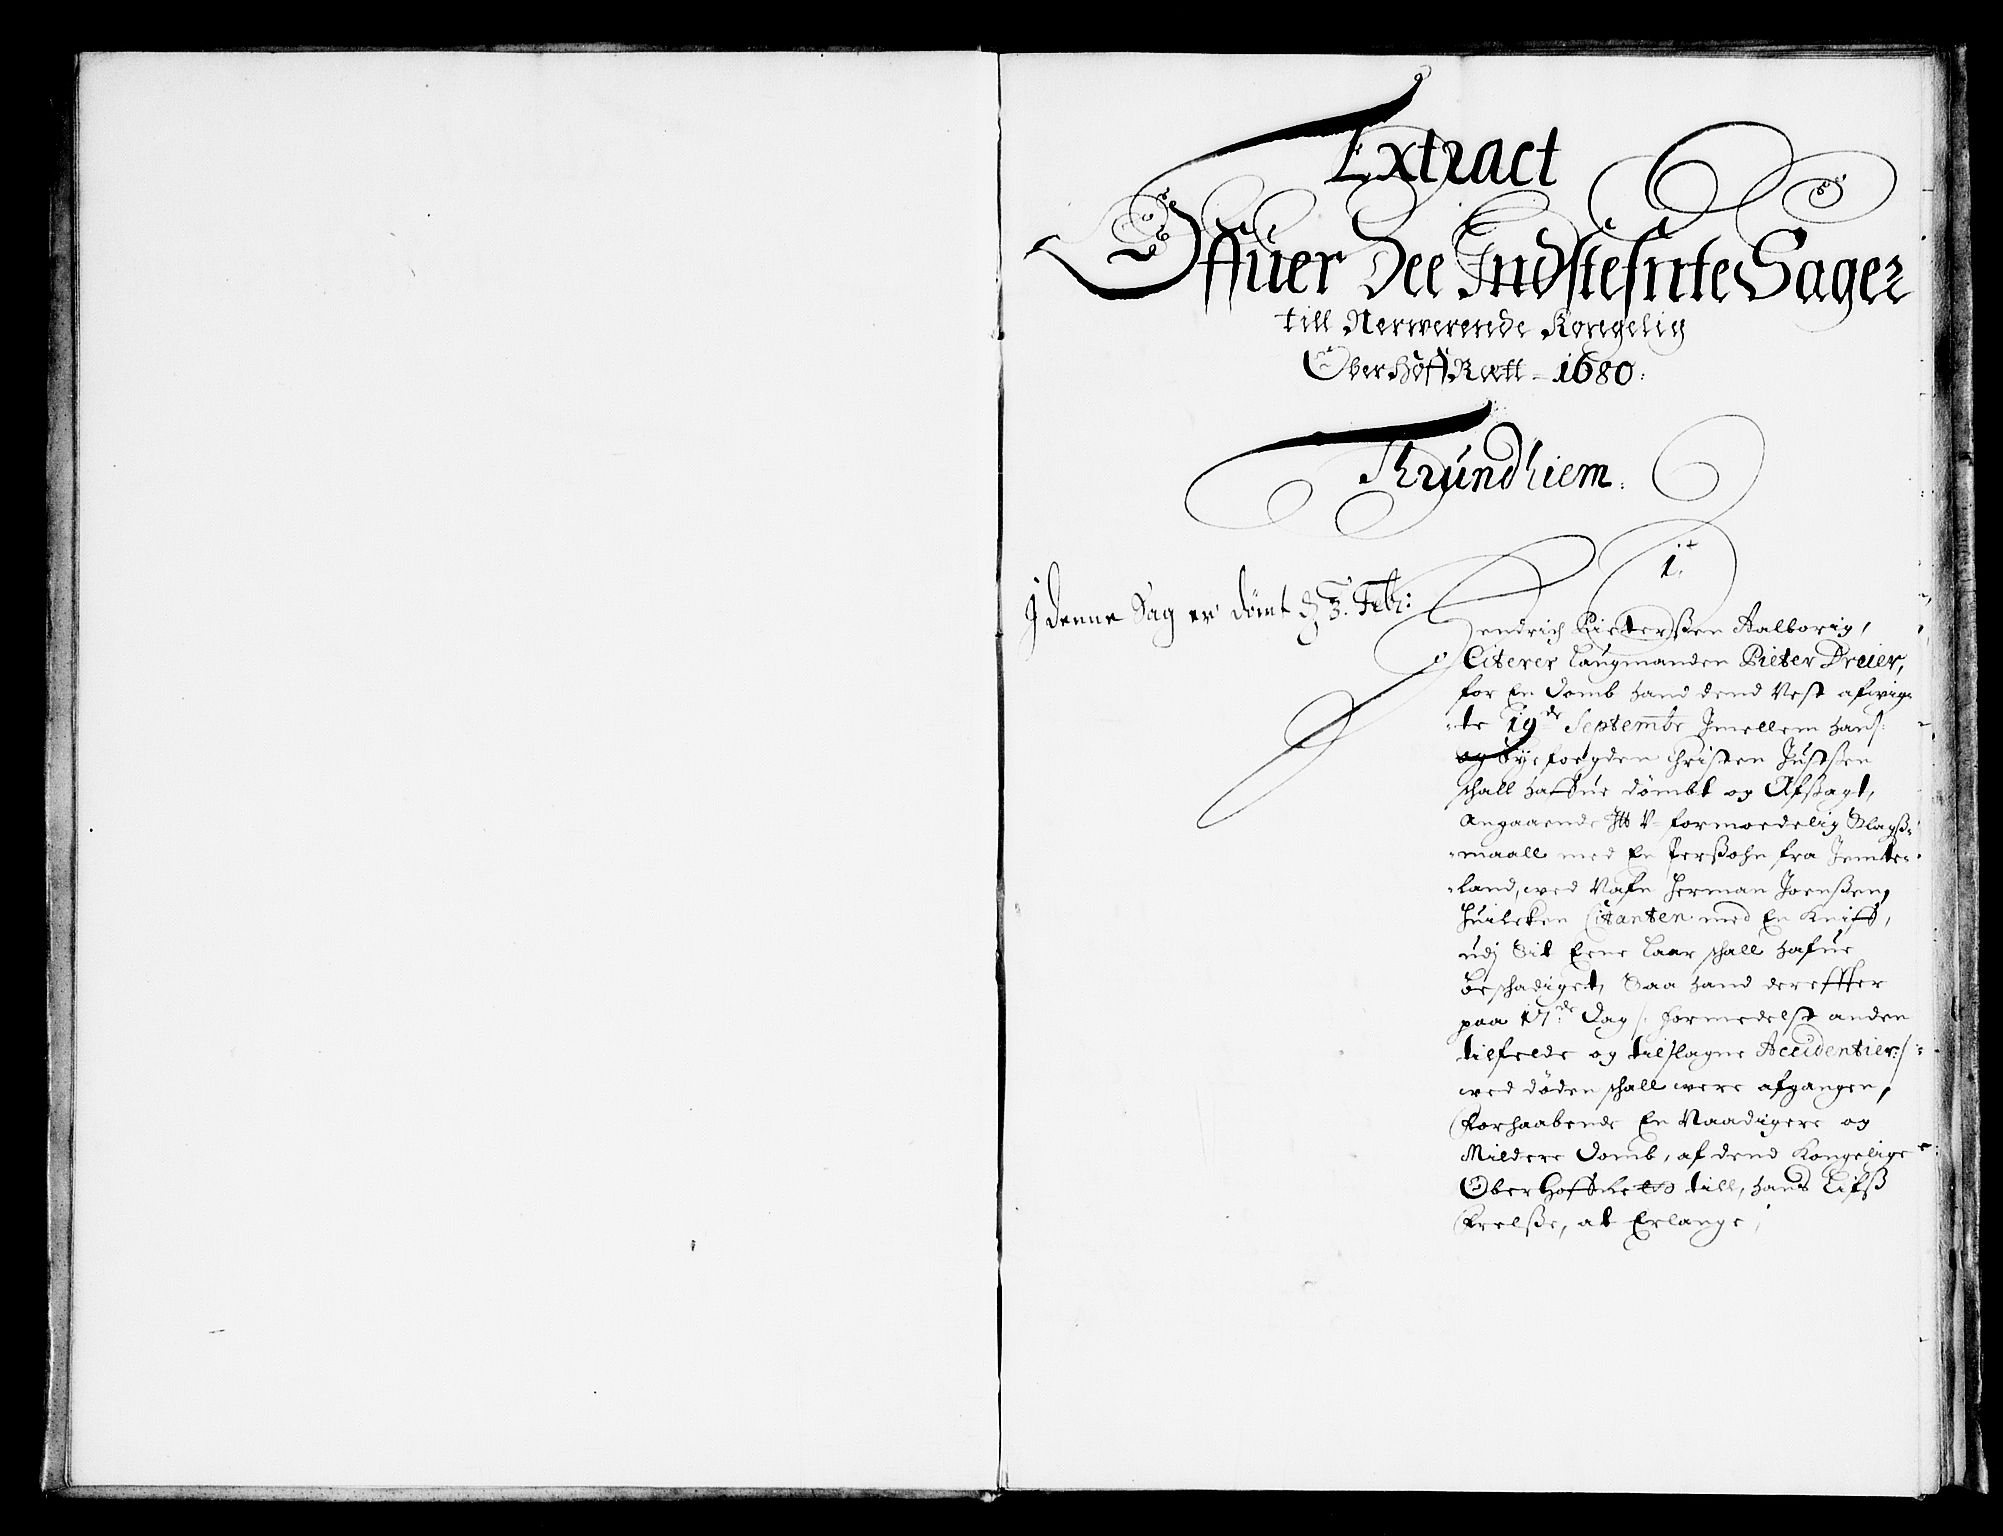 Extract
Offuer Dee Indstefnte Sager
till Nerwerende Kongelig
OberHoffRætt - 1680:
Thrundhiem.
1.
I denne Sag er dömt d 3. Febr:
Hendrich Pieterßen Aalborig,
Citerer Laugmanden Pieter Dreier,
for En Domb hand dend Nest afwig-
-te 19de Septembr Jmellem ham
og byefoegden Christen Justßen
schall haffue dömbt og Afsagt,
Angaaende Itt V-formoedelig Slagß-
-maall med En Perßohn fra Jemte-
-land, wed Nafn Herman Joenßen,
Huilcken Citanten med En Kniff,
udj Sit Eene Laar schall hafue
beschadiget, Saa hand dereffter
paa 17de Dag /: formedelst anden
tilfelde og tilslagne Accidentier :/
wed døden schall were afgangen,
Forhaabende En Naadigere og
Mildere Domb, af dend Kongelige
OberHoffRett till, hans Lifß
Frelße, at Erlange,